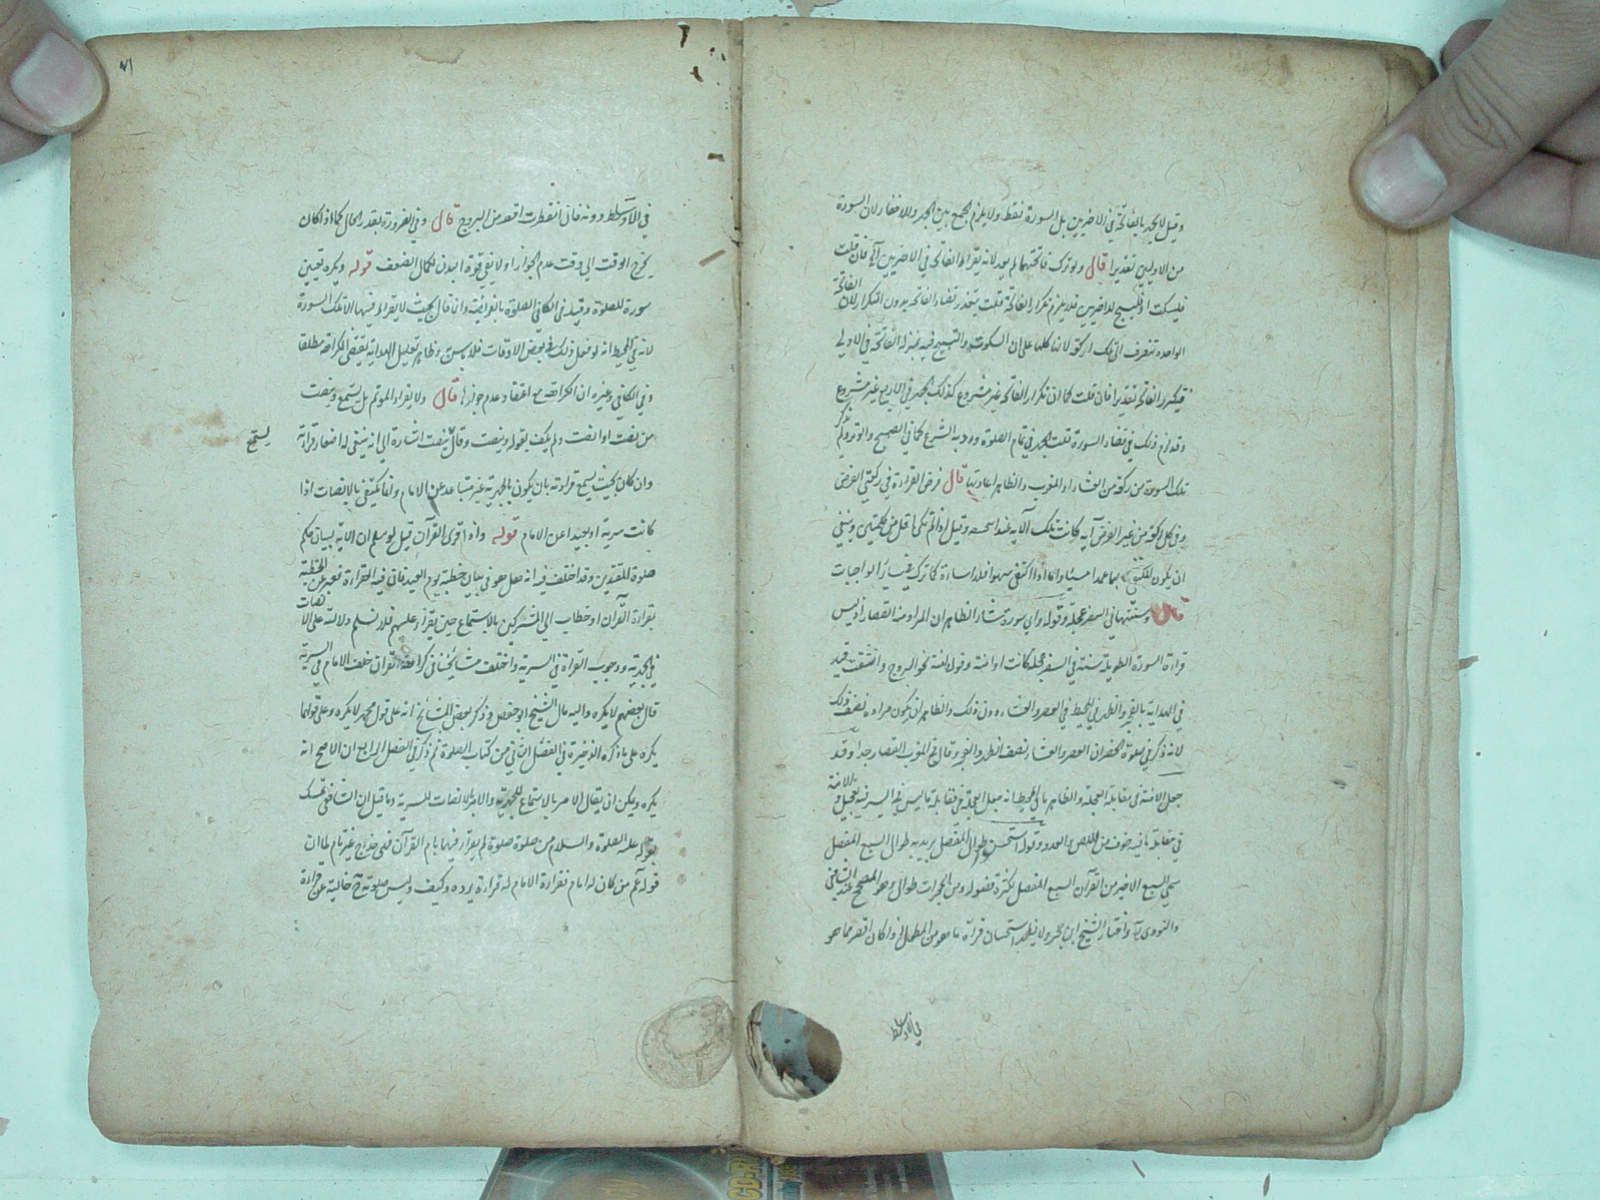 وقيل لا يجهر بالفاتحة في الاخريين بل السورة فقط ولا يلزم الجمع بين الجهر والاخفاء لان السورة
من الاوليين تقديرا قال ولو ترك فاتحتهما لم يعد لانه يقرا الفاتحة في الاخريين فان قلت
الفاتحة
فلا يلزم تكرار الفاتحة قلت يتعذر قضاء الفاتحة بدون التكرار لان
الواحدة تنصرف الى تلك الركعة لانها كلها على ان السكوت والتسبيح فيه بمنزلة الفاتحة في الاولى
فيتكرر الفاتحة تقديرا فان قلت كما ان تكرار الفاتحة غير مشروع كذلك الجهر في الاربع غير مشروع
وقد لزم ذلك في قضاء السورة قلت الجهر في تمام الصلوة ورد به الشرع كما في الصبح والوتر ولم يذكر
تلك السورة من ركعة من العشاء او المغرب والظاهر اعادتها قال فرض القراءة في ركعتي الفرض
وفي كل ركعة من غير الفرض آية كانت تلك الآية عند وقيل اذا لم تكن اقل من كلمتين وينبغي
ان يكون المكتفي بها عمدا مسيئا واما اذا اكتفى سهوا فلا اساءة كما ترك غيرها من الواجبات
قال وسنتها في السفر عجلة وقوله واي سورة شاء الظاهر ان المراد منه القصار اذ ليس
قراءة السورة الطويلة سنة في السفر عجلة كانت او امنة وقوله امنة نحو البروج وانشقت قيد
في الهداية بالفجر والظهر في المحيط في العصر والعشاء دون ذلك والظاهر ان يكون مراده نصف ذلك
لانه ذكر في صلوة الحضر ان العصر والعشاء نصف الظهر والفجر وقال في المغرب القصار جدا وقد
الامنة
جعل الامنة في مقابلة العجلة والظاهر ما في المحيط انه جعل العجلة في مقابلة ما ليس فيه السير فيه بعجيل و
في مقابلة ما فيه خوف من اللص والعدو وقوله استحسن طوال المفصل يريد به طوال السبع المفصل
سمي السبع الاخير من القرآن السبع المفصل لكثرة فصوله ومن الحجرات طوال وهو المصحح عند الشافعي
والنووي واختار الشيخ ابن حجر ولا يبعد استحسان قراءة ما هو من الطوال وان كان اقصر مما هو
في الاوساط
في الاوساط دونه فان انفطرت اقصر من البروج قال وفي الضرورة بقدر الحال كما اذا كان
يخرج الوقت الى وقت عدم الجواز او لا يفي قوة البدن لكمال الضعف قوله ويكره تعيين
سورة للصلوة وقيد في الكافي الصلوة بالفرائض وانما قال بحيث لا يقرا فيها الا تلك السورة
لانه في المحيط انه لو فعل ذلك في بعض الاوقات فلا باس وظاهر تعليل الهداية يقتضي الكراهة مطلقا
وفي الكافي وغيره ان الكراهة مع اعتقاد عدم جوازها قال ولا يقرا المؤتم بل يستمع وينصت
من نصت او انصت ولم يكتف بقوله وينصت وقال ينصت اشارة الى انه ينبغي له اصغاء قراءته
يستمع
وان كان بحيث يسمع قراءته بان يكون بالجهرية غير متباعد عن الامام وانما يكتفي بالانصات اذا
كانت سرية او بعيدا عن الامام قوله واذا قرئ القرآن قيل لو سلم ان الآية لبيان حكم
صلوة المقتدين وقد اختلف فيه انه هل هو في بيان خطبة يوم العيد فاتى فيه القراءة فعبر عن الخطبة
بقراءة القرآن او خطاب الى المشركين بالاستماع حين يقرا عليهم فلا نسلم دلالته على الانصات
في الجهرية ووجوب القراءة في السرية واختلف مشايخنا في كراهة القراءة خلف الامام في السرية
قال بعضهم لا يكره واليه مال الشيخ ابو حفص وذكر بعض المشايخ انه على قول محمد لا يكره وعلى قولهما
يكره على ما ذكره الذخيرة في الفصل الثاني من كتاب الصلوة ثم ذكر في الفصل الرابع ان الاصح انه
يكره ويمكن ان يقال الامر بالاستماع للجهرية والامر بالانصات للسرية وما قيل ان الشافعي تمسك
بقوله عليه الصلوة والسلام من صلى صلوة لم يقرا فيها بام القرآن فهي خداج غير تمام لما ان
قوله عم من كان له امام فقراءة الامام له قراءة يرده وكيف وليس صلوته خالية عن قراءة